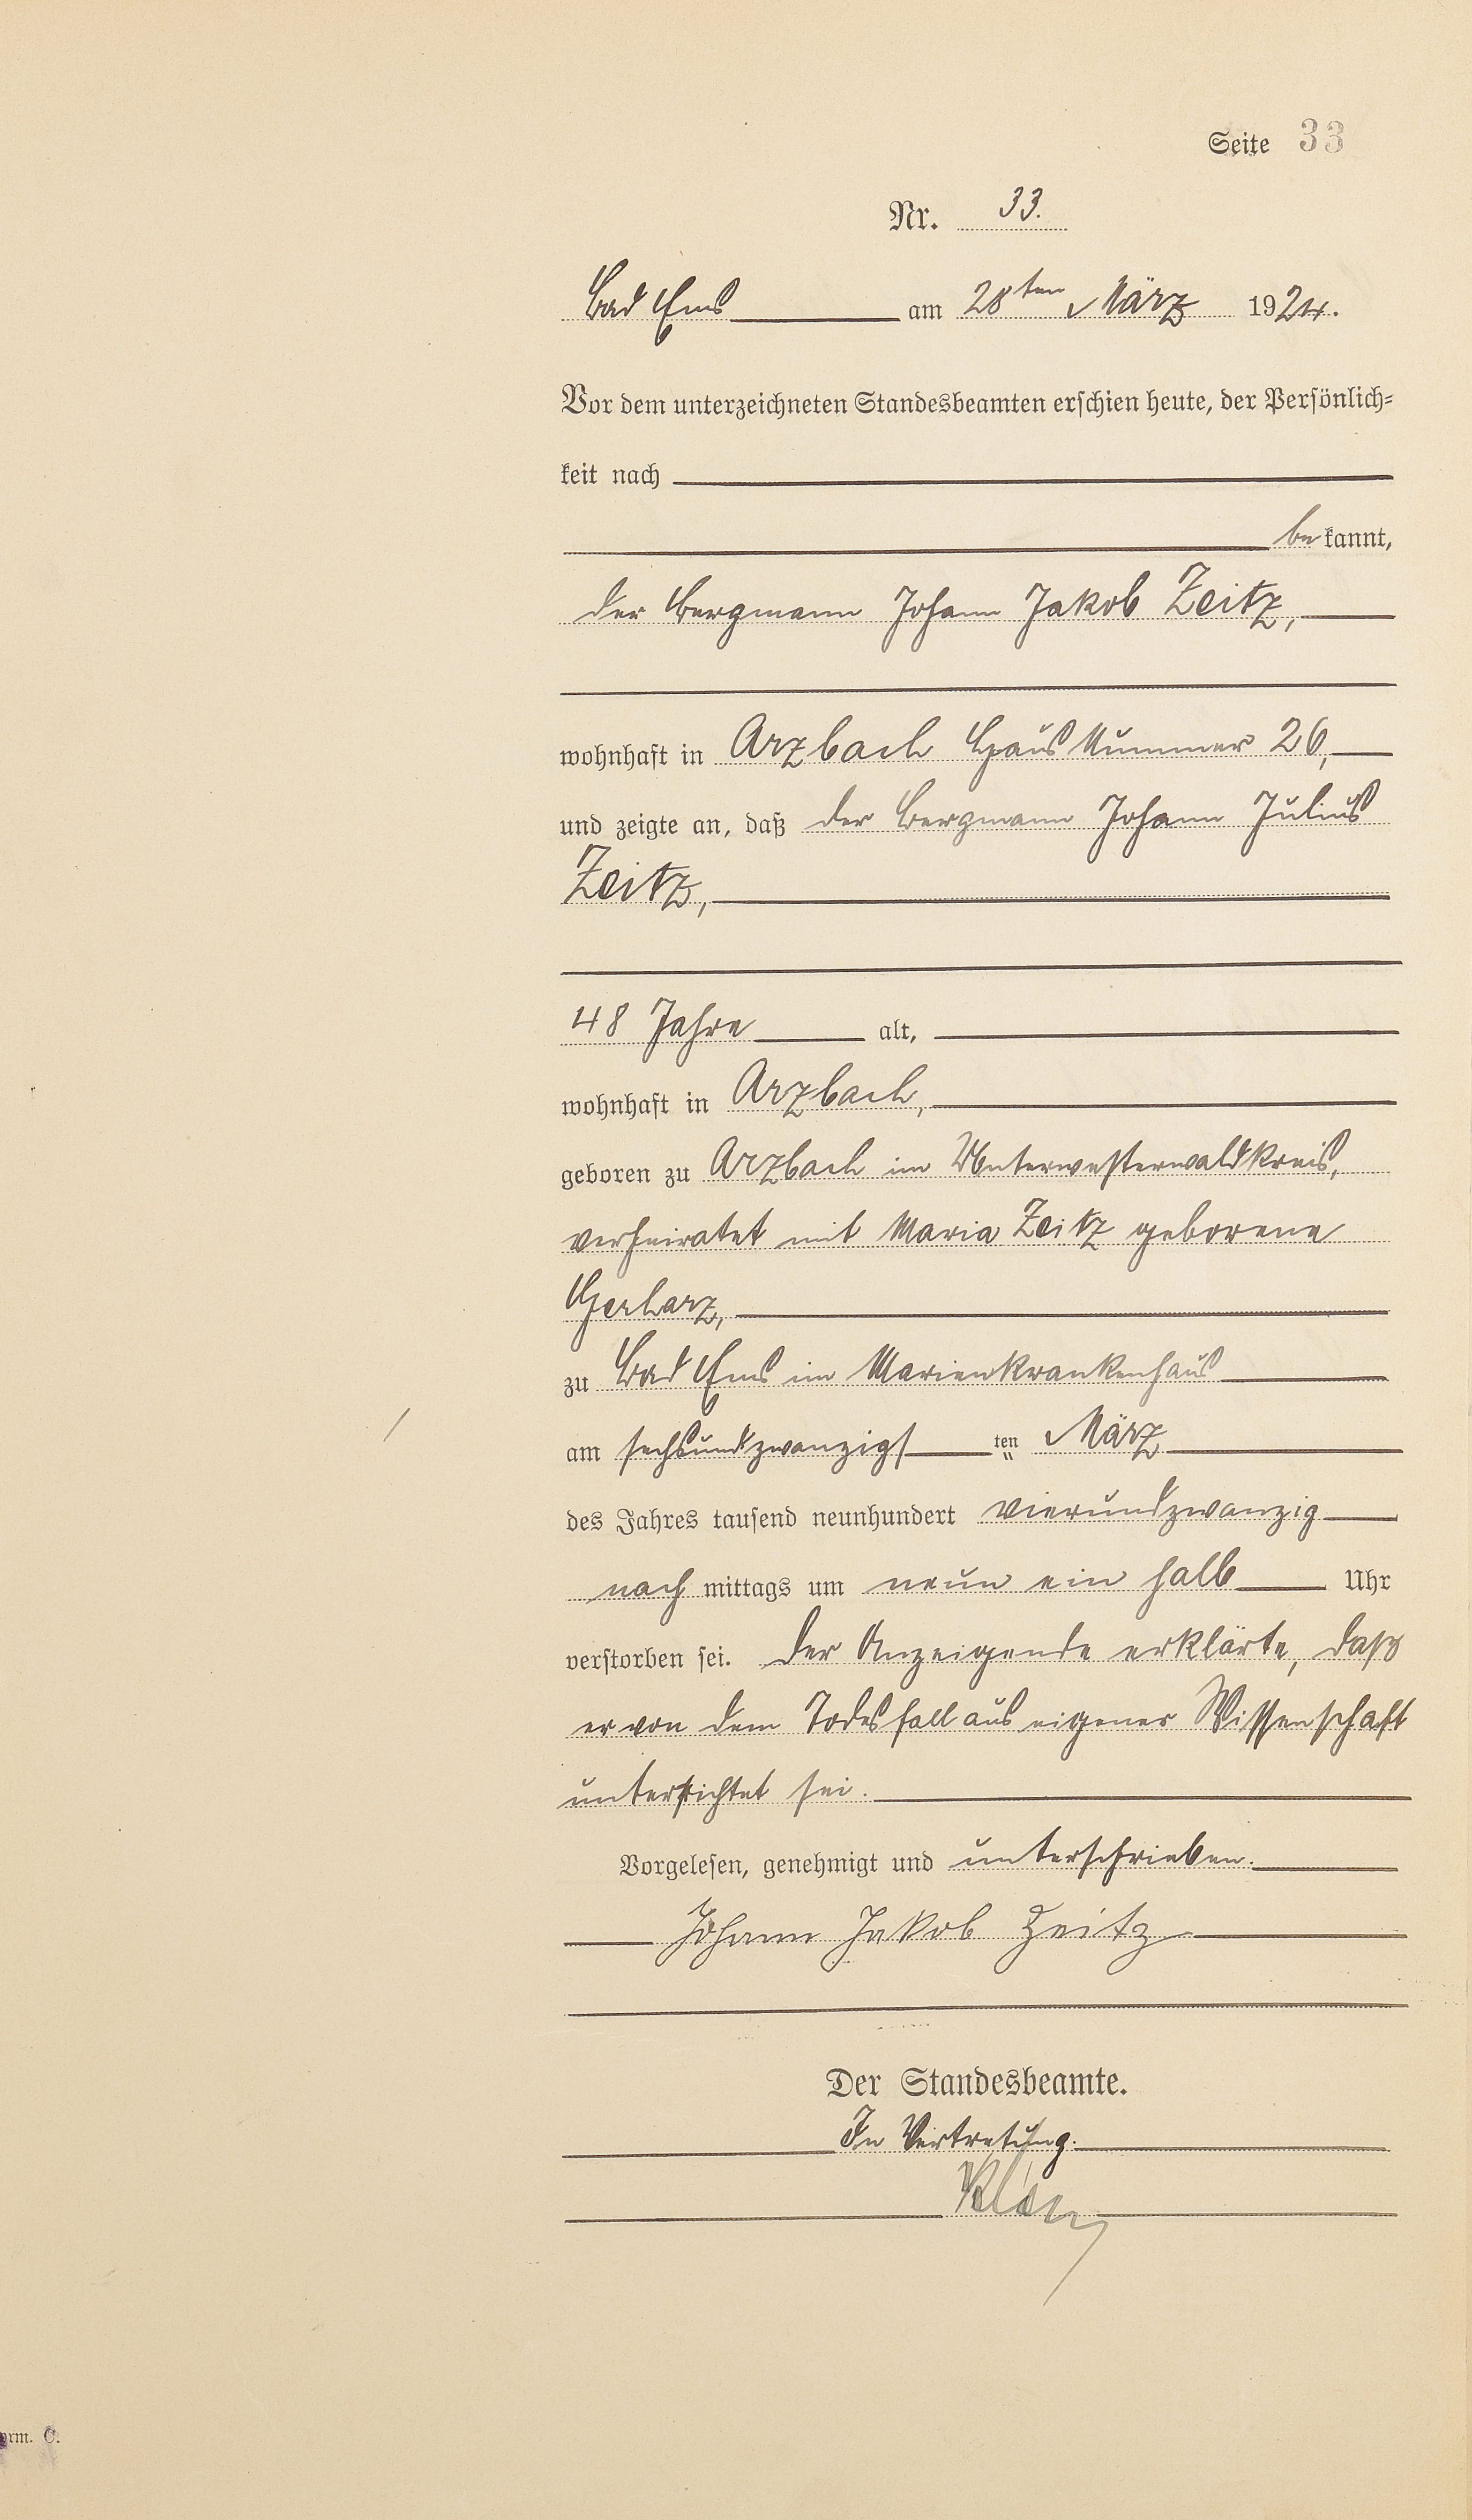 Seite 33
Nr. 33.
Bad Ems am 28ten März 1924.
Vor dem unterzeichneten Standesbeamten erschien heute, der Persönlich-
keit nach
bekannt,
der Bergmann Johann Jakob Zeitz,
wohnhaft in Arzbach Haus Nummer 26,
und zeigte an, daß der Bergmann Johann Julius
Zeitz,
48 Jahre alt,
wohnhaft in Arzbach,
geboren zu Arzbach im Unterwesterwaldkreis,
verheiratet mit Maria Zeitz geborene
Gerharz,
zu Bad Ems im Marienkrankenhaus
am sechsundzwanzigsten März
des Jahres tausend neunhundert vierundzwanzig
nachmittags um neun ein halb Uhr
verstorben sei. Der Anzeigende erklärte, daß
er von dem Todesfall aus eigener Wissenschaft
unterrichtet sei.
Vorgelesen, genehmigt und unterschrieben.
Johann Jakob Zeitz
Der Standesbeamte.
In Vertretung.
orm. C.